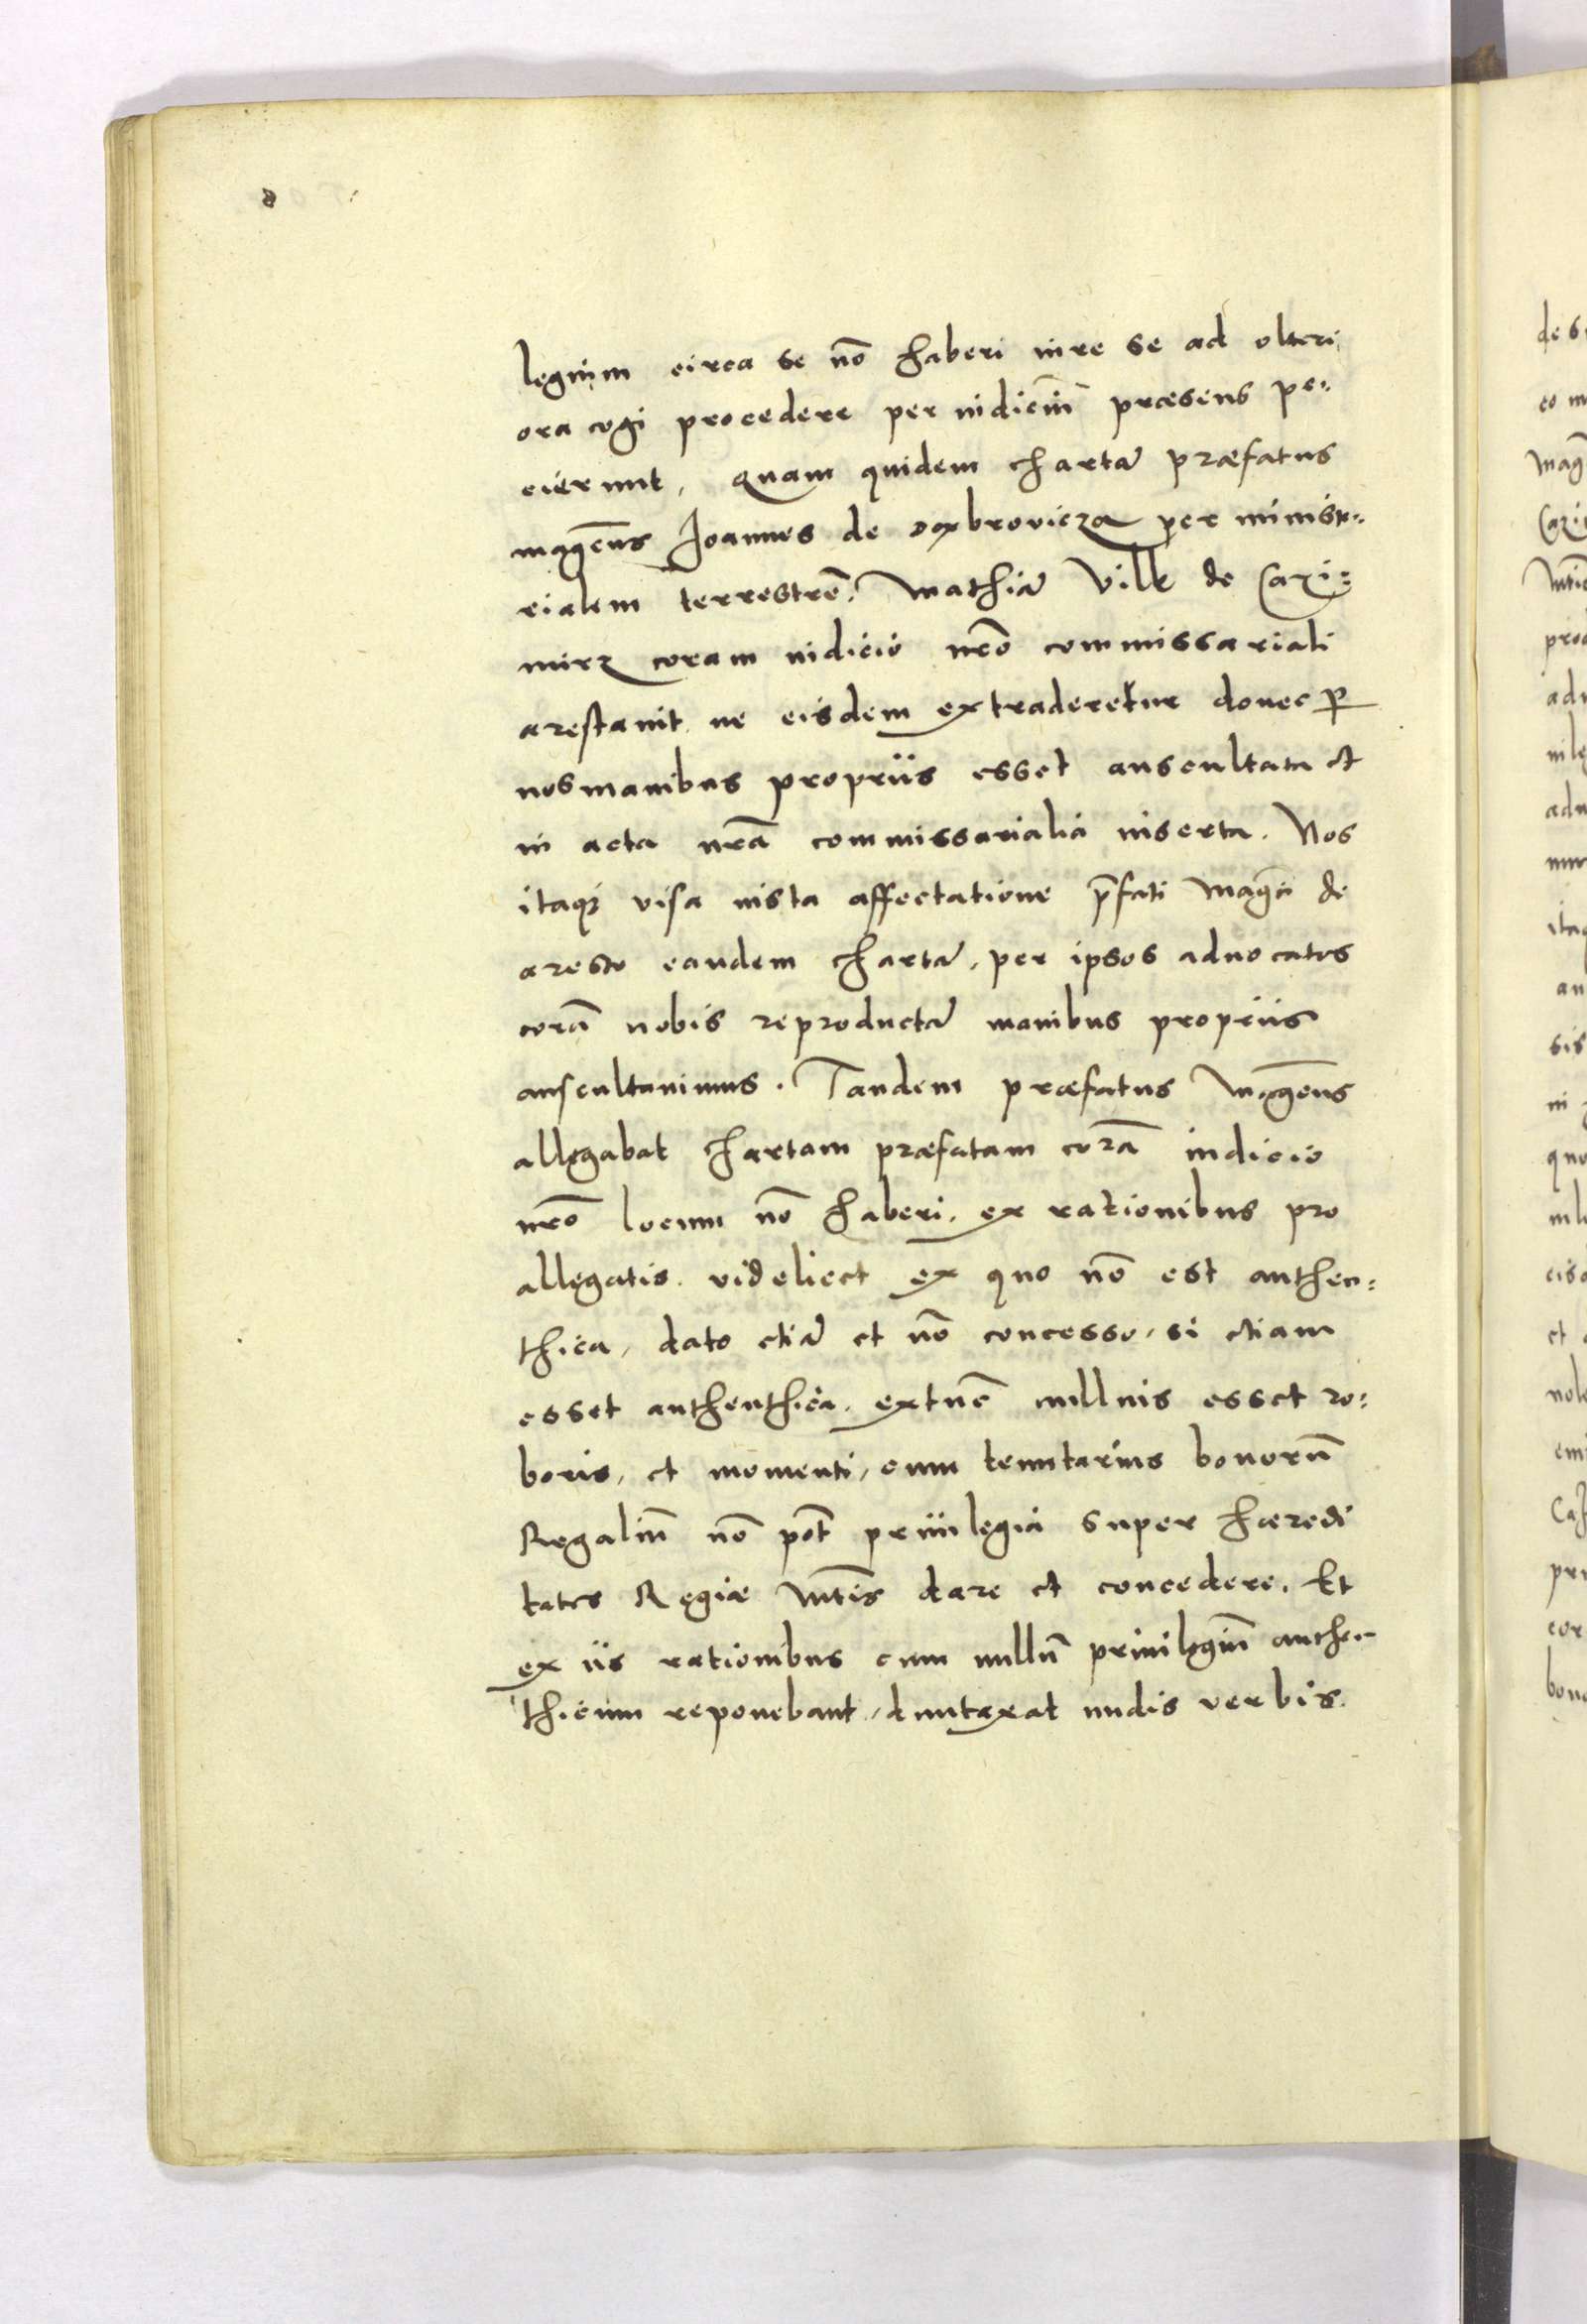 legium circa se nõ haberi iure se ad vlteri
ora cogi procedere per iudiciũ præsens pe-
cierunt, quam quidem chartã præfatus
magcus Joannes de Dąbrowicza per minist-
rialem terrestrẽ, Mathiã Vilk de Cazi-
mirz coram iudicio nrõ commissariali
arestauit ne eisdem extraderetur donec ꝑ
nos manibus propriis esset auscultata et
in acta nrã commissarialia inserta. Nos
itaqꝫ visa iusta affectatione p̃fati Magci de
aresto eandem chartã, per ipsos aduocatos
corã nobis reproductã manibus propriis
auscultauimus. Tandem præfatus Magcus
allegabat chartam præfatam corã iudicio
nrõ locum nõ haberi, ex rationibus pro
allegatis videlicet ex quo nõ est authen-
thica, dato etiã et nõ concesso, si etiam
esset authenthica, extũc nullius esset ro-
boris, et momenti, cum tenutarius bonorũ
Regaliũ nõ põt priuilegia super hæredi
tates Regiæ Mtis dare et concedere. Et
ex iis rationibus cum nullũ priuilegiũ authen-
thicum reponebant, duntaxat nudis verbis